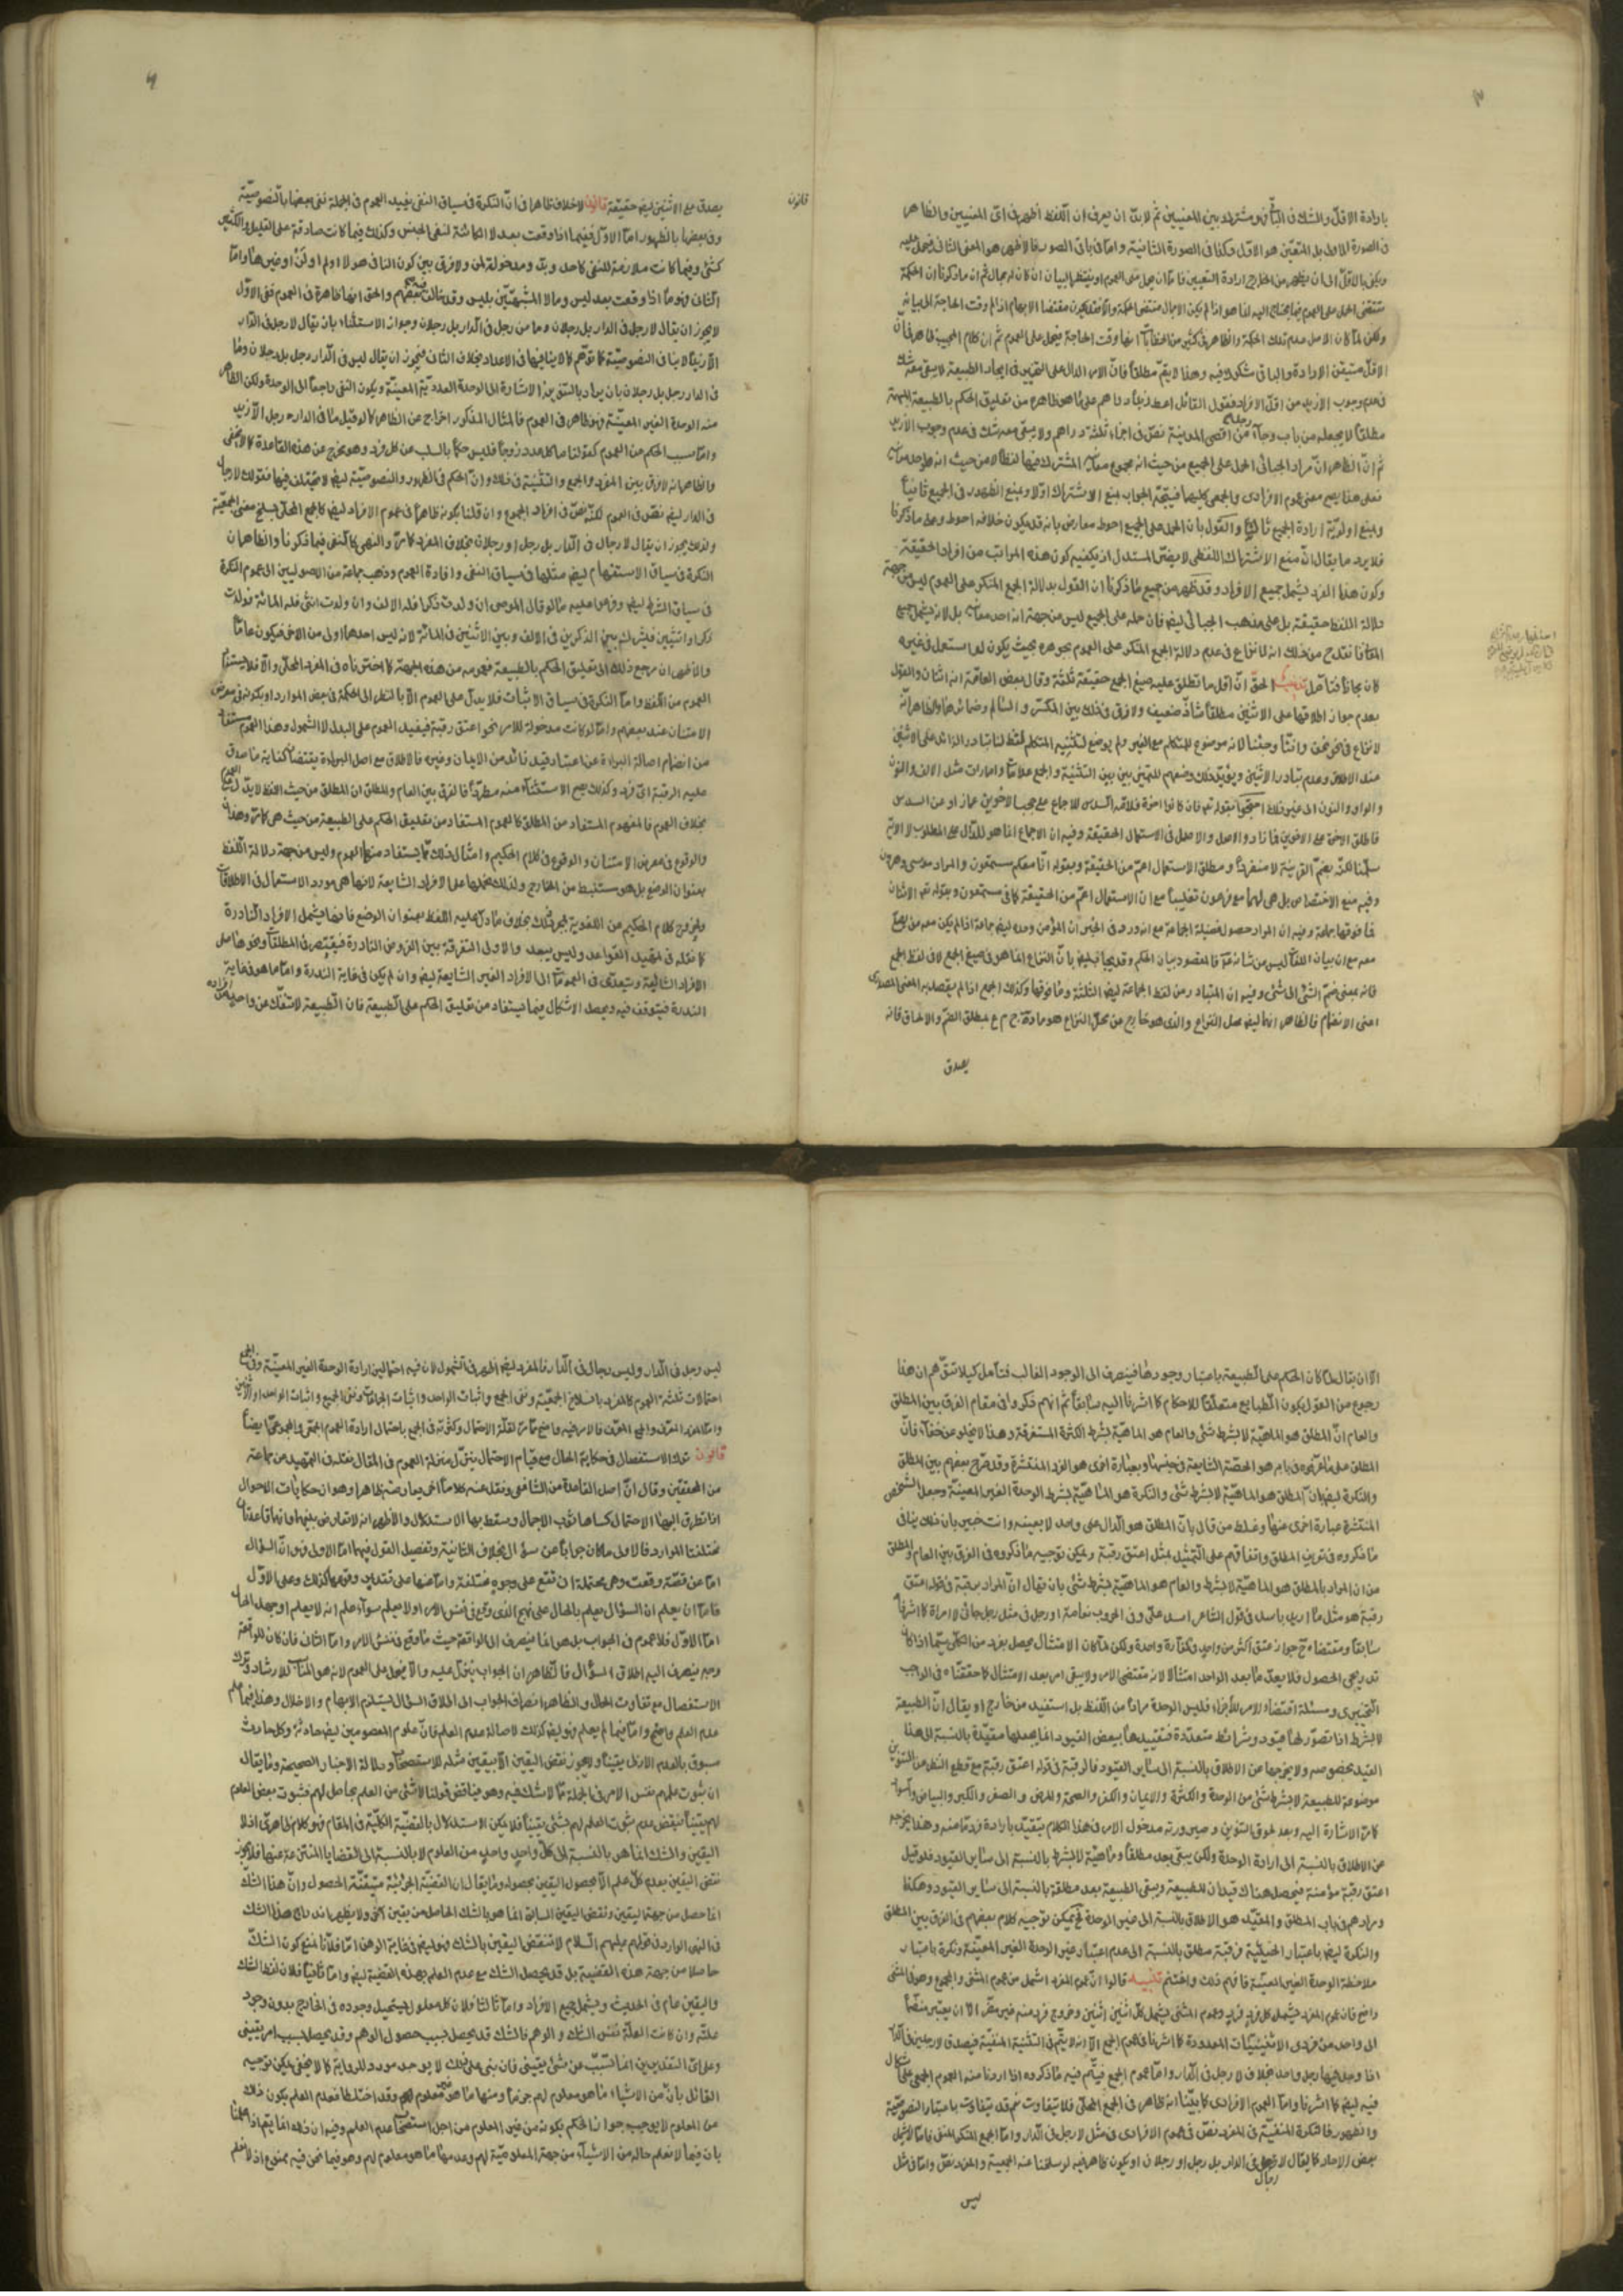 بارادة الاقل والشك في الثاني ومشترك بين المعنيين ثم لا بد ان يعرف ان اللفظ اظهر في اى المعنيين والظاهر
في الصورة الاولى بل المتعين هو الاول وكذا في الصورة الثانية واما في باقى الصور فالاظهر هو المعنى الثانى فيحمل عليه
الاقل متيقن الارادة والباقى مشكوك فيه وهذا لا يتم مطلقا فان الامر الدال على التخيير في ايجاد الطبيعة لا يبقى معه شك
ثم ان الظاهر ان مراد الجبائى الحمل على الجميع من حيث انه مجموع معانى المشترك فيها لفظا لا من حيث انه احد معانيه
فعلى هذا يصح معنى عموم الافرادى والجمعى كليهما فيتجه الجواب بمنع الاشتراك اولا وبمنع الظهور في الجميع ثانيا
وبمنع اولوية ارادة الجميع ثالثا والقول بان الحمل على الجميع احوط معارض بانه قد يكون خلافه احوط وعلى ما ذكرنا
فلا يرد ما يقال ان منع الاشتراك اللفظى لا يضر المستدل اذ يكفيه كون هذه المراتب من افراد الحقيقة
وكون هذا الفرد يشمل جميع الافراد وقد ظهر من جميع ما ذكرنا ان القول بدلالة الجمع المنكر على العموم ليس من جهة
دلالة اللفظ حقيقة بل على مذهب الجبائى ايضا فان حمله على الجميع ليس من جهة انه احد معانيه بل لانه يشمل جميع
المعانى فانقدح من ذلك انه لا نزاع في عدم دلالة الجمع المنكر على العموم بجوهره بحيث يكون لو استعمل في غيره
كان مجازا فتأمل تذنيب الحق ان اقل ما تطلق عليه صيغ الجمع حقيقة ثلثة وقال بعض العامة انه اثنان والقول
بعدم جواز اطلاقها على الاثنين مطلقا شاذ ضعيف ولا فرق في ذلك بين المكسر والسالم وضمائرهما والظاهر انه
لا نزاع في نحو نحن وانّا وجئنا لانه موضوع للمتكلم مع الغير ولم يوضع لتثنية المتكلم لفظ لنا تبادر الزائد على الاثنين
عند الاطلاق وعدم تبادر الاثنين ويؤيد ذلك وضعهم للتميز بين التثنية والجمع علامات وامارات مثل الالف والنون
والواو والنون الى غير ذلك احتجوا بقوله تع فان كان له اخوة فلامه السدس للاجماع على حجب الاخوين عما زاد عن السدس
فاطلق الاخوة على الاخوين فما زاد والاصل في الاستعمال الحقيقة وفيه ان الاجماع انما هو للدال على المطلوب لا الآية
سلمنا لكنه بضم القرينة لا منفردا ومطلق الاستعمال اعم من الحقيقة وبقوله انا معكم مستمعون والمراد موسى وهرون
وفيه منع الاختصاص بل هى لهما مع فرعون تغليبا مع ان الاستعمال اعم من الحقيقة كما في مستمعون وبقوله ع الاثنان
فما فوقهما جماعة وفيه ان المراد حصول فضيلة الجماعة مع انه ورد في الخبر ان المؤمن وحده ايضا جماعة اذا لم يكن معه من يصلى
معه مع ان بيان اللغة ليس من شانه ع فالمقصود بيان الحكم وقد يجاب ايضا بان النزاع انما هو في صيغ الجمع لا في لفظ الجمع
فانه بمعنى ضم الشئ الى شئ وفيه ان المتبادر من لفظ الجماعة ايضا الثلثة وما فوقها وكذلك الجمع اذا لم يقصد به المعنى المصدرى
اعنى الانضمام فالظاهر انها ايضا محل النزاع والذى هو خارج عن محل النزاع هو مادة ج م ع بمطلق الضم والالحاق فانه
يصدق
قانون
يصدق مع الاثنين ايضا حقيقة قانون لا خلاف ظاهرا في ان النكرة في سياق النفى يفيد العموم في الجملة ففى بعضها بالنصوصية
وفي بعضها بالظهور اما الاول ففيما اذا وقعت بعد لا الكائنة لنفى الجنس وكذلك فيما كانت صادقة على القليل والكثير
كشئ وفيما كانت ملازمة للنفى كاحد وبدّ ومدخولة لمن ولا فرق بين كون النافى هو لا او لم او لن او غيرها واما
الثانى فهو ما اذا وقعت بعد ليس وما ولا المشبهتين بليس وقد خالف فيه بعضهم والحق انها ظاهرة في العموم ففى الاول
لا يجوز ان يقال لا رجل في الدار بل رجلان وما من رجل في الدار بل رجلان وجواز الاستثناء بان يقال لا رجل في الدار
الا زيدا لا ينافى النصوصية كما توهم كما لا ينافيها في الاعداد بخلاف الثانى فيجوز ان يقال ليس في الدار رجل بل رجلان وما
في الدار رجل بل رجلان بان يراد بالتنوين الاشارة الى الوحدة العددية المعينة ويكون النفى راجعا الى الوحدة ولكن الظاهر
منه الوحدة الغير المعينة فهو ظاهر في العموم فالمثال المذكور اخراج عن الظاهر كما لو قيل ما في الدار رجل الا زيد
واما سلب الحكم عن العموم كقولنا ما كل عدد زوجا فليس حكما بالسلب عن كل فرد وهو مخرج عن هذه القاعدة كما لا يخفى
والظاهر انه لا فرق بين المفرد والجمع والتثنية في ذلك وان الحكم في الظهور والنصوصية ايضا لا يختلف فيها فقولك لا رجال
في الدار ايضا نص في العموم لكنه نص في افراد الجموع وان قلنا بكونه ظاهرا في عموم الافراد ايضا كالجمع المحلى بسلخ معنى الجمعية
ولذلك يجوز ان يقال لا رجال في الدار بل رجل او رجلان بخلاف المفرد كما مر والنهى كالنفى فيما ذكرنا والظاهر ان
النكرة في سياق الاستفهام ايضا مثلها في سياق النفى وافادة العموم وذهب جماعة من الاصوليين الى عموم النكرة
في سياق الشرط ايضا وفرعوا عليه ما لو قال الموصى ان ولدت ذكرا فله الالف وان ولدت انثى فله المائة فولدت
ذكرين او انثيين فيشرك بين الذكرين في الالف وبين الانثيين في المائة لانه ليس احدهما اولى من الاخر فيكون عاما
والاظهر ان مرجع ذلك الى تعليق الحكم بالطبيعة فعمومه من هذه الجهة كما اخترناه في المفرد المحلى والا فلا يستفاد
العموم من اللفظ واما النكرة في سياق الاثبات فلا يدل على العموم الا بالنظر الى الحكمة في بعض الموارد او بكونه في معرض
الامتنان عند بعضهم واما لو كانت مدخولة للامر نحو اعتق رقبة فيفيد العموم على البدل لا الشمول وهذا العموم مستفاد
من انضمام اصالة البراءة عن اعتبار قيد زائد من الايمان وغيره فالاطلاق مع اصل البراءة يقتضيان كفاية ما صدق
عليه الرقبة اى فرد وكذلك يصح الاستثناء منه مطردا فالفرق بين العام والمطلق ان المطلق من حيث اللفظ لا يدل على العموم
بخلاف العموم فالمفهوم المستفاد من المطلق كالعموم المستفاد من تعليق الحكم على الطبيعة من حيث هى كما مر وهذا
والوقوع في معرض الامتنان والوقوع في كلام الحكيم وامثال ذلك مما يستفاد منها العموم وليس من جهة دلالة اللفظ
بعنوان الوضع بل هو مستنبط من الخارج ولذلك نحملها على الافراد الشايعة لانها هى مورد الاستعمال في الاطلاقات
ولخروج كلام الحكيم عن اللغوية بمجرد ذلك بخلاف ما دل عليه اللفظ بعنوان الوضع فانها يشمل الافراد النادرة
كما نقله في تمهيد القواعد وليس ببعيد والاولى التفرقة بين الفروض النادرة فيقتصر في المطلقات ونحوها على
الافراد الشائعة ويتعدى في العمومات الى الافراد الغير الشايعة ايضا وان لم يكن في غاية الندرة واما ما هو في غاية
الندرة فيتوقف فيه ويحصل الاشكال فيما يستفاد من تعليق الحكم على الطبيعة فان الطبيعة لا تنفك عن واحد من افراده
الا ان يقال لما كان الحكم على الطبيعة باعتبار وجودها فينصرف الى الوجود الغالب فتأمل كيلا تتوهم ان هذا
رجوع عن القول بكون الطبايع متعلقا للاحكام كما اشرنا اليه سابقا ثم انهم ذكروا في مقام الفرق بين المطلق
والعام ان المطلق هو الماهية لا بشرط شئ والعام هو الماهية بشرط الكثرة المستغرقة وهذا لا يخلو عن خفاء فان
المطلق على ما عرفوه في بابه هو الحصة الشايعة في جنسها وبعبارة اخرى هو الفرد المنتشرة وقد صرح بعضهم بين المطلق
والنكرة ايضا بان المطلق هو الماهية لا بشرط شئ والنكرة هو الماهية بشرط الوحدة الغير المعينة وجعل الشخص
المنتشرة عبارة اخرى منها وغلط من قال بان المطلق هو الدال على واحد لا بعينه وانت خبير بان ذلك ينافى
ما ذكروه في تعريف المطلق واتفاقهم على التمثيل بمثل اعتق رقبة ويمكن توجيه ما ذكروه في الفرق بين العام والمطلق
من ان المراد بالمطلق هو الماهية لا بشرط والعام هو الماهية بشرط شئ بان يقال ان المراد برقبة في قوله اعتق
رقبة هو مثل ما اريد باسد في قول الشاعر اسد على وفي الحروب نعامة او رجل في مثل رجل جائنى لا امراة كما اشرنا
سابقا ومقتضاه ح جواز عتق اكثر من واحد وكفارة واحدة ولكن لما كان الامتثال يحصل بفرد من الكلى سيما اذا كان
تدريجى الحصول فلا يعد ما بعد الواحد امتثالا لانه مقتضى الامر ولا يبقى امر بعد الامتثال كما حققناه في الواجب
التخييرى ومسئلة اقتضاء الامر للاجزاء فليس الوحدة مرادا من اللفظ بل استفيد من خارج او يقال ان الطبيعة
لا بشرط اذا تصور لها قيود وشرائط متعددة فتقييدها ببعض القيود انما يجعلها مقيدة بالنسبة الى هذا
القيد بخصوصه ولا يخرجها عن الاطلاق بالنسبة الى ساير القيود فالرقبة في قوله اعتق رقبة مع قطع النظر عن التنوين
موضوعة للطبيعة لا بشرط شئ من الوحدة والكثرة والايمان والكفر والصحة والمرض والصغر والكبر والبياض والسواد
كما مر الاشارة اليه وبعد لحوق التنوين وصيرورته مدخول الامر في هذا الكلام يتقيد بارادة فرد ما منه وهذا يخرجه
عن الاطلاق بالنسبة الى ارادة الوحدة ولكن يبقى بعد مطلقا وماهية لا بشرط بالنسبة الى ساير القيود فلو قيل
اعتق رقبة مؤمنة فيحصل هناك قيدان للطبيعة ويبقى الطبيعة بعد مطلقة بالنسبة الى ساير القيود وهكذا
ومرادهم في باب المطلق والمقيد هو الاطلاق بالنسبة الى غير الوحدة فح يمكن توجيه كلام بعضهم في الفرق بين المطلق
والنكرة ايضا باعتبار الحيثية فرقبة مطلق بالنسبة الى عدم اعتبار غير الوحدة الغير المعينة ونكرة باعتبار
ملاحظة الوحدة الغير المعينة فافهم ذلك واغتنم تنبيه قالوا ان عموم المفرد اشمل من عموم المثنى والمجموع وهو في المثنى
واضح فان عموم المفرد يشمل كل فرد فرد وعموم المثنى يشمل كل اثنين اثنين وخروج فرد منه غير مضر الا ان يعتبر منضما
الى واحد من فردى الاثنينيات المعدودة كما اشرنا في عموم الجمع الا انه لا يتم في التثنية المنفية فيصدق لا رجلين في الدار
اذا وجد فيها رجل واحد بخلاف لا رجل في الدار واما عموم الجمع فيتم فيه ما ذكروه اذا اردنا منه العموم الجمعى على اشكال
فيه ايضا كما اشرنا واما العموم الافرادى كما بينا انه ظاهر في الجمع المحلى فلا يتفاوت نعم قد يتفاوت باعتبار النصوصية
والظهور فالنكرة المنفية في المفرد نص في عموم الافرادى في مثل لا رجل في الدار واما الجمع المنكر المنفى فاما لا يشمل
بعض الاحاد كما يقال لا رجال في الدار بل رجل او رجلان او يكون ظاهرا فيه لو سلخنا عنه الجمعية والمفرد نص واما في مثل
ليس
ليس رجل في الدار وليس رجال في الدار فالمفرد ايضا اظهر في الشمول لان فيه احتمالين ارادة الوحدة الغير المعينة وفي الجمع
احتمالات ثلثة العموم كالمفرد بانسلاخ الجمعية ونفى الجمع واثبات الواحد واثبات الجماعات ونفى الجميع واثبات الواحد او الاثنين
واما المفرد المعرف والجمع المعرف فالامر فيه واضح مما مر لقلة الاحتمال وكثرته في الجمع باحتمال ارادة العموم الجمعى والمجموعى ايضا
قانون ترك الاستفصال في حكاية الحال مع قيام الاحتمال ينزل منزلة العموم في المقال نقله في التمهيد عن جماعة
من المحققين وقال ان اصل القاعدة من الشافعى ونقل عنه كلاما اخر يعارضه ظاهرا وهو ان حكايات الاحوال
اذا تطرق اليها الاحتمال كساها ثوب الاجمال وسقط بها الاستدلال والاظهر انه لا تعارض بينهما وانهما قاعدتان
مختلفتا الموارد فالاولى ما كان جوابا عن سؤال بخلاف الثانية وتفصيل القول فيهما اما الاولى فهو ان السؤال
اما عن قضية وقعت وهى محتملة ان تقع على وجوه مختلفة واما عنها على تقدير وقوعها كذلك وعلى الاول
فاما ان يعلم ان المسؤل يعلم بالحال على نهج الذى وقع في نفس الامر او لا يعلم سواء علم انه لا يعلم او جهل الحال
اما الاول فلا عموم في الجواب بل هو انما ينصرف الى الواقعة حيث ما وقع في نفس الامر واما الثانى فان كان للواقعة
وجه ينصرف اليه اطلاق السؤال فالظاهر ان الجواب يتنزل عليه والا فيحمل على العموم لانه هو المناسب للارشاد وترك
الاستفصال مع تفاوت الحال والظاهر انصراف الجواب الى اطلاق السؤال ليستلزم الابهام والاخلال وهذا فيما علم
عدم العلم واضح واما فيما لم يعلم فهو ايضا كذلك لاصالة عدم العلم فان علوم المعصومين ايضا حادثة وكل حادث
مسبوق بالعدم الازلى يقينا ولا يجوز نقض اليقين الا بيقين مثله للاستصحاب ودلالة الاخبار الصحيحة وما يقال
ان ثبوت علمهم بنفس الامر في الجملة مما لا شك فيه وهو مناقض قولنا لا شئ من العلم بحاصل لهم فثبوت بعض العلوم
لهم يقينا ينقض عدم ثبوت العلم لهم بشئ يقينا فلا يمكن الاستدلال بالقضية الكلية في المقام فهو كلام ظاهرى اذ لا
اليقين والشك انما هو بالنسبة الى كل واحد واحد من العلوم لا بالنسبة الى القضايا المنتزعة عنها فلا يجوز
نقض اليقين بعدم كل علم الا بحصول اليقين بحصوله وما يقال ان القضية الجزئية متيقنة الحصول وان هذا الشك
انما حصل من جهة اليقين ونقض اليقين السابق انما هو بالشك الحاصل من يقين اخر ولا يظهر اندراج هذا الشك
في النهى الوارد في قولهم عليهم السلام لا تنقض اليقين بالشك فهو ايضا في غاية الوهن اما فلانا نمنع كون الشك
حاصلا من جهة هذه القضية بل قد يحصل الشك مع عدم العلم بهذه القضية ايضا واما ثانيا فلان لفظ الشك
واليقين عام في الحديث ويشمل جميع الافراد واما ثالثا فلان كل معلول يستحيل وجوده في الخارج بدون وجود
علته وان كانت العلة نفس الشك والوهم فالشك قد يحصل بسبب حصول الوهم وقد يحصل بسبب امر يقينى
وعلى اى التقديرين انما تسبب عن شئ يقينى فان بنى على ذلك لا يوجد مورد للرواية كما لا يخفى ويمكن توجيه
القائل بان من الاشياء ما هو معلوم لهم جزما ومنها ما هو غير معلوم لهم وقد اختلطا فعدم العلم بكون ذلك
من المعلوم لا يوجب جواز الحكم بكونه من غير المعلوم من اجل استصحاب عدم العلم وفيه ان ذلك انما يتم اذا علمنا
بان فيما لا نعلم حاله من الاشياء من جهة المعلومية لهم وعدمها ما هو معلوم لهم وهو فيما نحن فيه ممنوع اذ لا نعلم